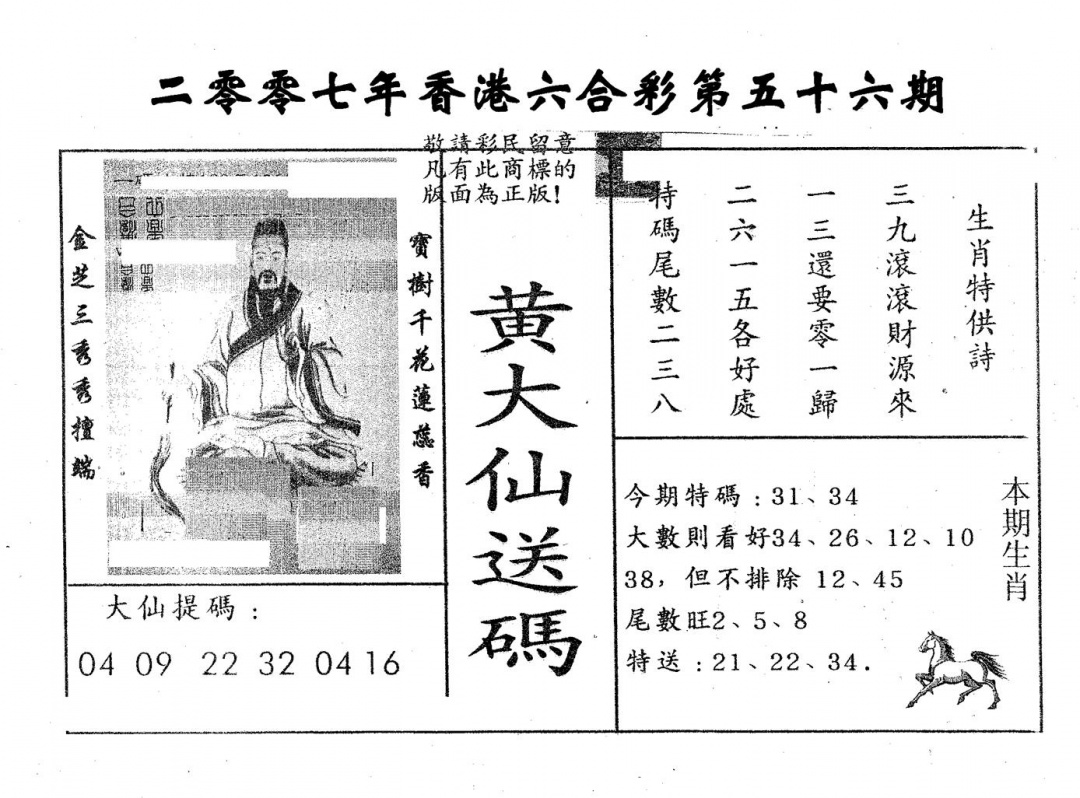 二零零七年香港六合彩第五十六期
敬請彩民留意
凡有此商標的
版面為正版!
生肖特供詩
三九滾滾財源來
一三還要零一歸
二六一五各好處
特碼尾數二三八
黃大仙送碼
寶樹千花蓮蕊香
金芝三秀秀擅端
大仙提碼：
04 09 22 32 04 16
今期特碼：31、34
大數則看好34、26、12、10
38，但不排除 12、45
尾數旺2、5、8
特送：21、22、34.
本期生肖